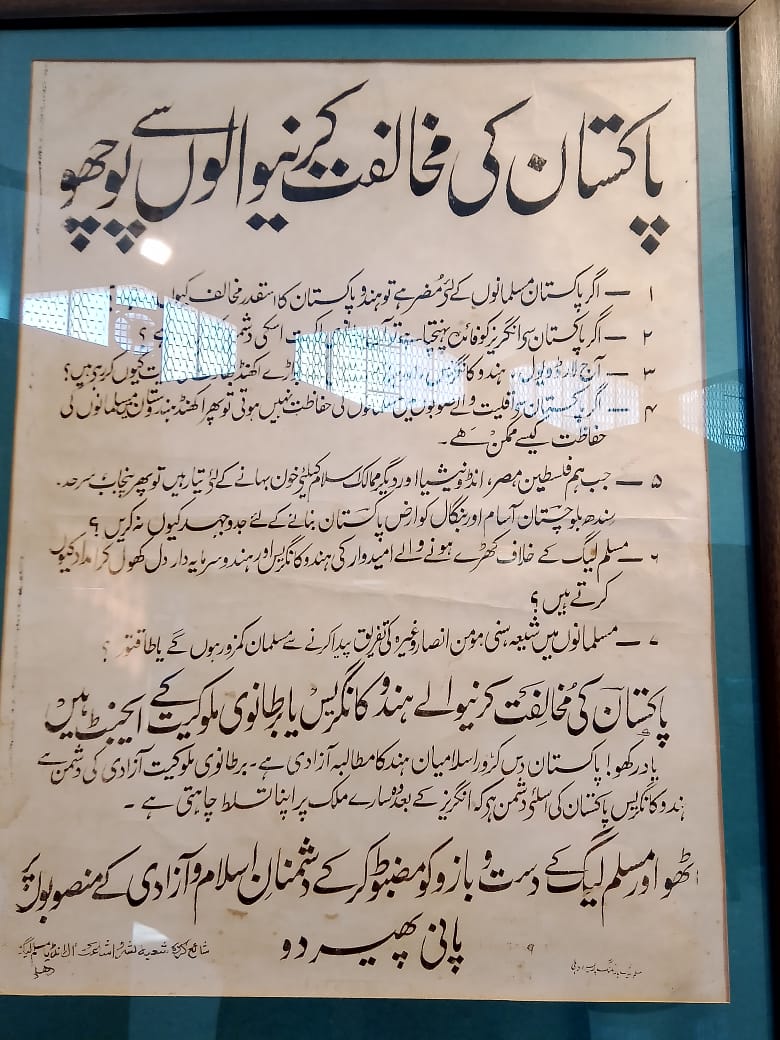 پاکستان کی مخالفت کرنیوالوں سے پوچھو
۱ — اگر پاکستان مسلمانوں کے لئے مُضر ہے تو ہندو پاکستان کا اسقدر مخالف کیوں
۲ — اگر پاکستان سے انگریز کو فائدہ پہنچتا ہے تو اسکی ؟
۳ — آج لارڈ ویول، ہندو کانگریس، اکھنڈ کیوں کر رہی ہیں؟
۴ — اگر پاکستان سے اقلیت والے صوبوں میں مسلمانوں کی حفاظت نہیں ہوتی تو پھر اکھنڈ ہندوستان میں مسلمانوں کی
حفاظت کیسے ممکن ہے۔
۵ — جب ہم فلسطین مصر، انڈونیشیا اور دیگر ممالک اسلام کیلئے خون بہانے کے لئے تیار ہیں تو پھر پنجاب سرحد۔
سندھ بلوچستان آسام اور بنگال کو ارض پاکستان بنانے کے لئے جدوجہد کیوں نہ کریں ؟
۶ — مسلم لیگ کے خلاف کھڑے ہونے والے امیدوار کی ہندو کانگریس اور ہندو سرمایہ دار دل کھول کر امداد کیوں
کرتے ہیں ؟
۷ — مسلمانوں میں شیعہ، سنی مومن انصار وغیرہ کی تفریق پیدا کرنے سے مسلمان کمزور ہوں گے یا طاقتور ؟
پاکستان کی مُخالفت کرنیوالے ہندو کانگریس یا برطانوی ملوکیت کے ایجنٹ ہیں
یاد رکھو! پاکستان دس کروڑ اسلامیان ہند کا مطالبہ آزادی ہے۔ برطانوی ملوکیت آزادی کی دشمن ہے
ہندو کانگریس پاکستان کی اسلئے دشمن ہے کہ انگریز کے بعد وہ سارے ملک پر اپنا تسلط چاہتی ہے ۔
اٹھو اور مسلم لیگ کے دست و بازو کو مضبوط کر کے دشمنانِ اسلام و آزادی کے منصوبوں پر
پانی پھیر دو
شائع کردہ شعبہ نشر و اشاعت آل انڈیا مسلم لیگ۔
دھلی